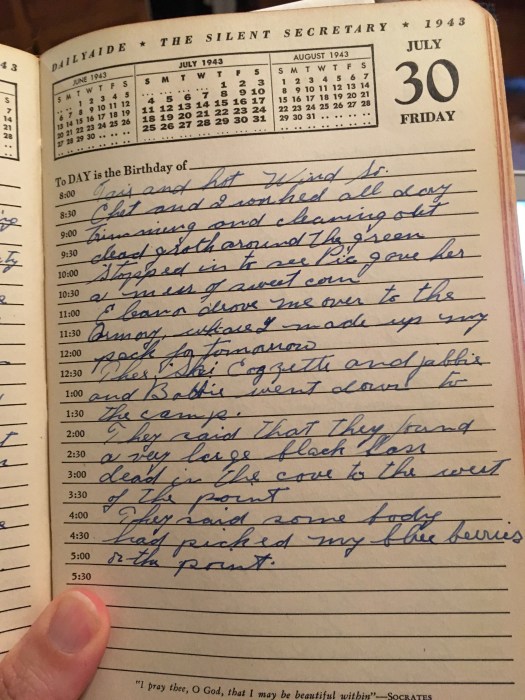 43
DAILYAIDE ★ THE SILENT SECRETARY ★ 1943
JUNE 1943
S M T W T F S
1 2 3 4 5
6 7 8 9 10 11 12
13 14 15 16 17 18 19
20 21 22 23 24 25 26
27 28 29 30
JULY 1943
S M T W T F S
1 2 3
4 5 6 7 8 9 10
11 12 13 14 15 16 17
18 19 20 21 22 23 24
25 26 27 28 29 30 31
AUGUST 1943
S M T W T F S
1 2 3 4 5 6 7
8 9 10 11 12 13 14
15 16 17 18 19 20 21
22 23 24 25 26 27 28
29 30 31
JULY
30
FRIDAY
To DAY is the Birthday of
8:00 and hot Wind So.
8:30 Chet and I worked all day
9:00 trimming and cleaning out
9:30 dead groth around the green
10:00 Stopped in to see Pic gave her
10:30 a mess of sweet corn
11:00 Eleanor drove me over to the
11:30 Armory where I made up my
12:00 pack for tomorrow
12:30 and
1:00 and Bobbie went down to
1:30 the camp.
2:00 They said that they found
2:30 a very large black bass
3:00 dead in the cove to the west
3:30 of the point
4:00 They said some body
4:30 had picked my blue berries
5:00 on the point.
5:30
"I pray thee, O God, that I may be beautiful within"—SOCRATES